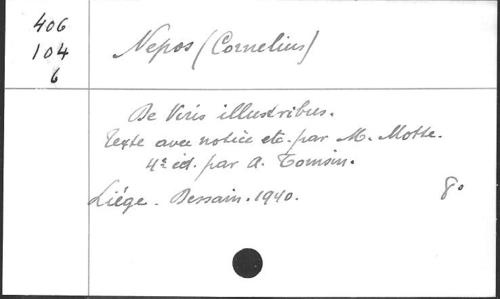 406
104
6
Nepos (Cornelius)
De Viris illustribus.
Texte avec notice etc. par M. Motte.
4e éd. par A. Tomsin.
Liége. Dessain. 1940.
8o